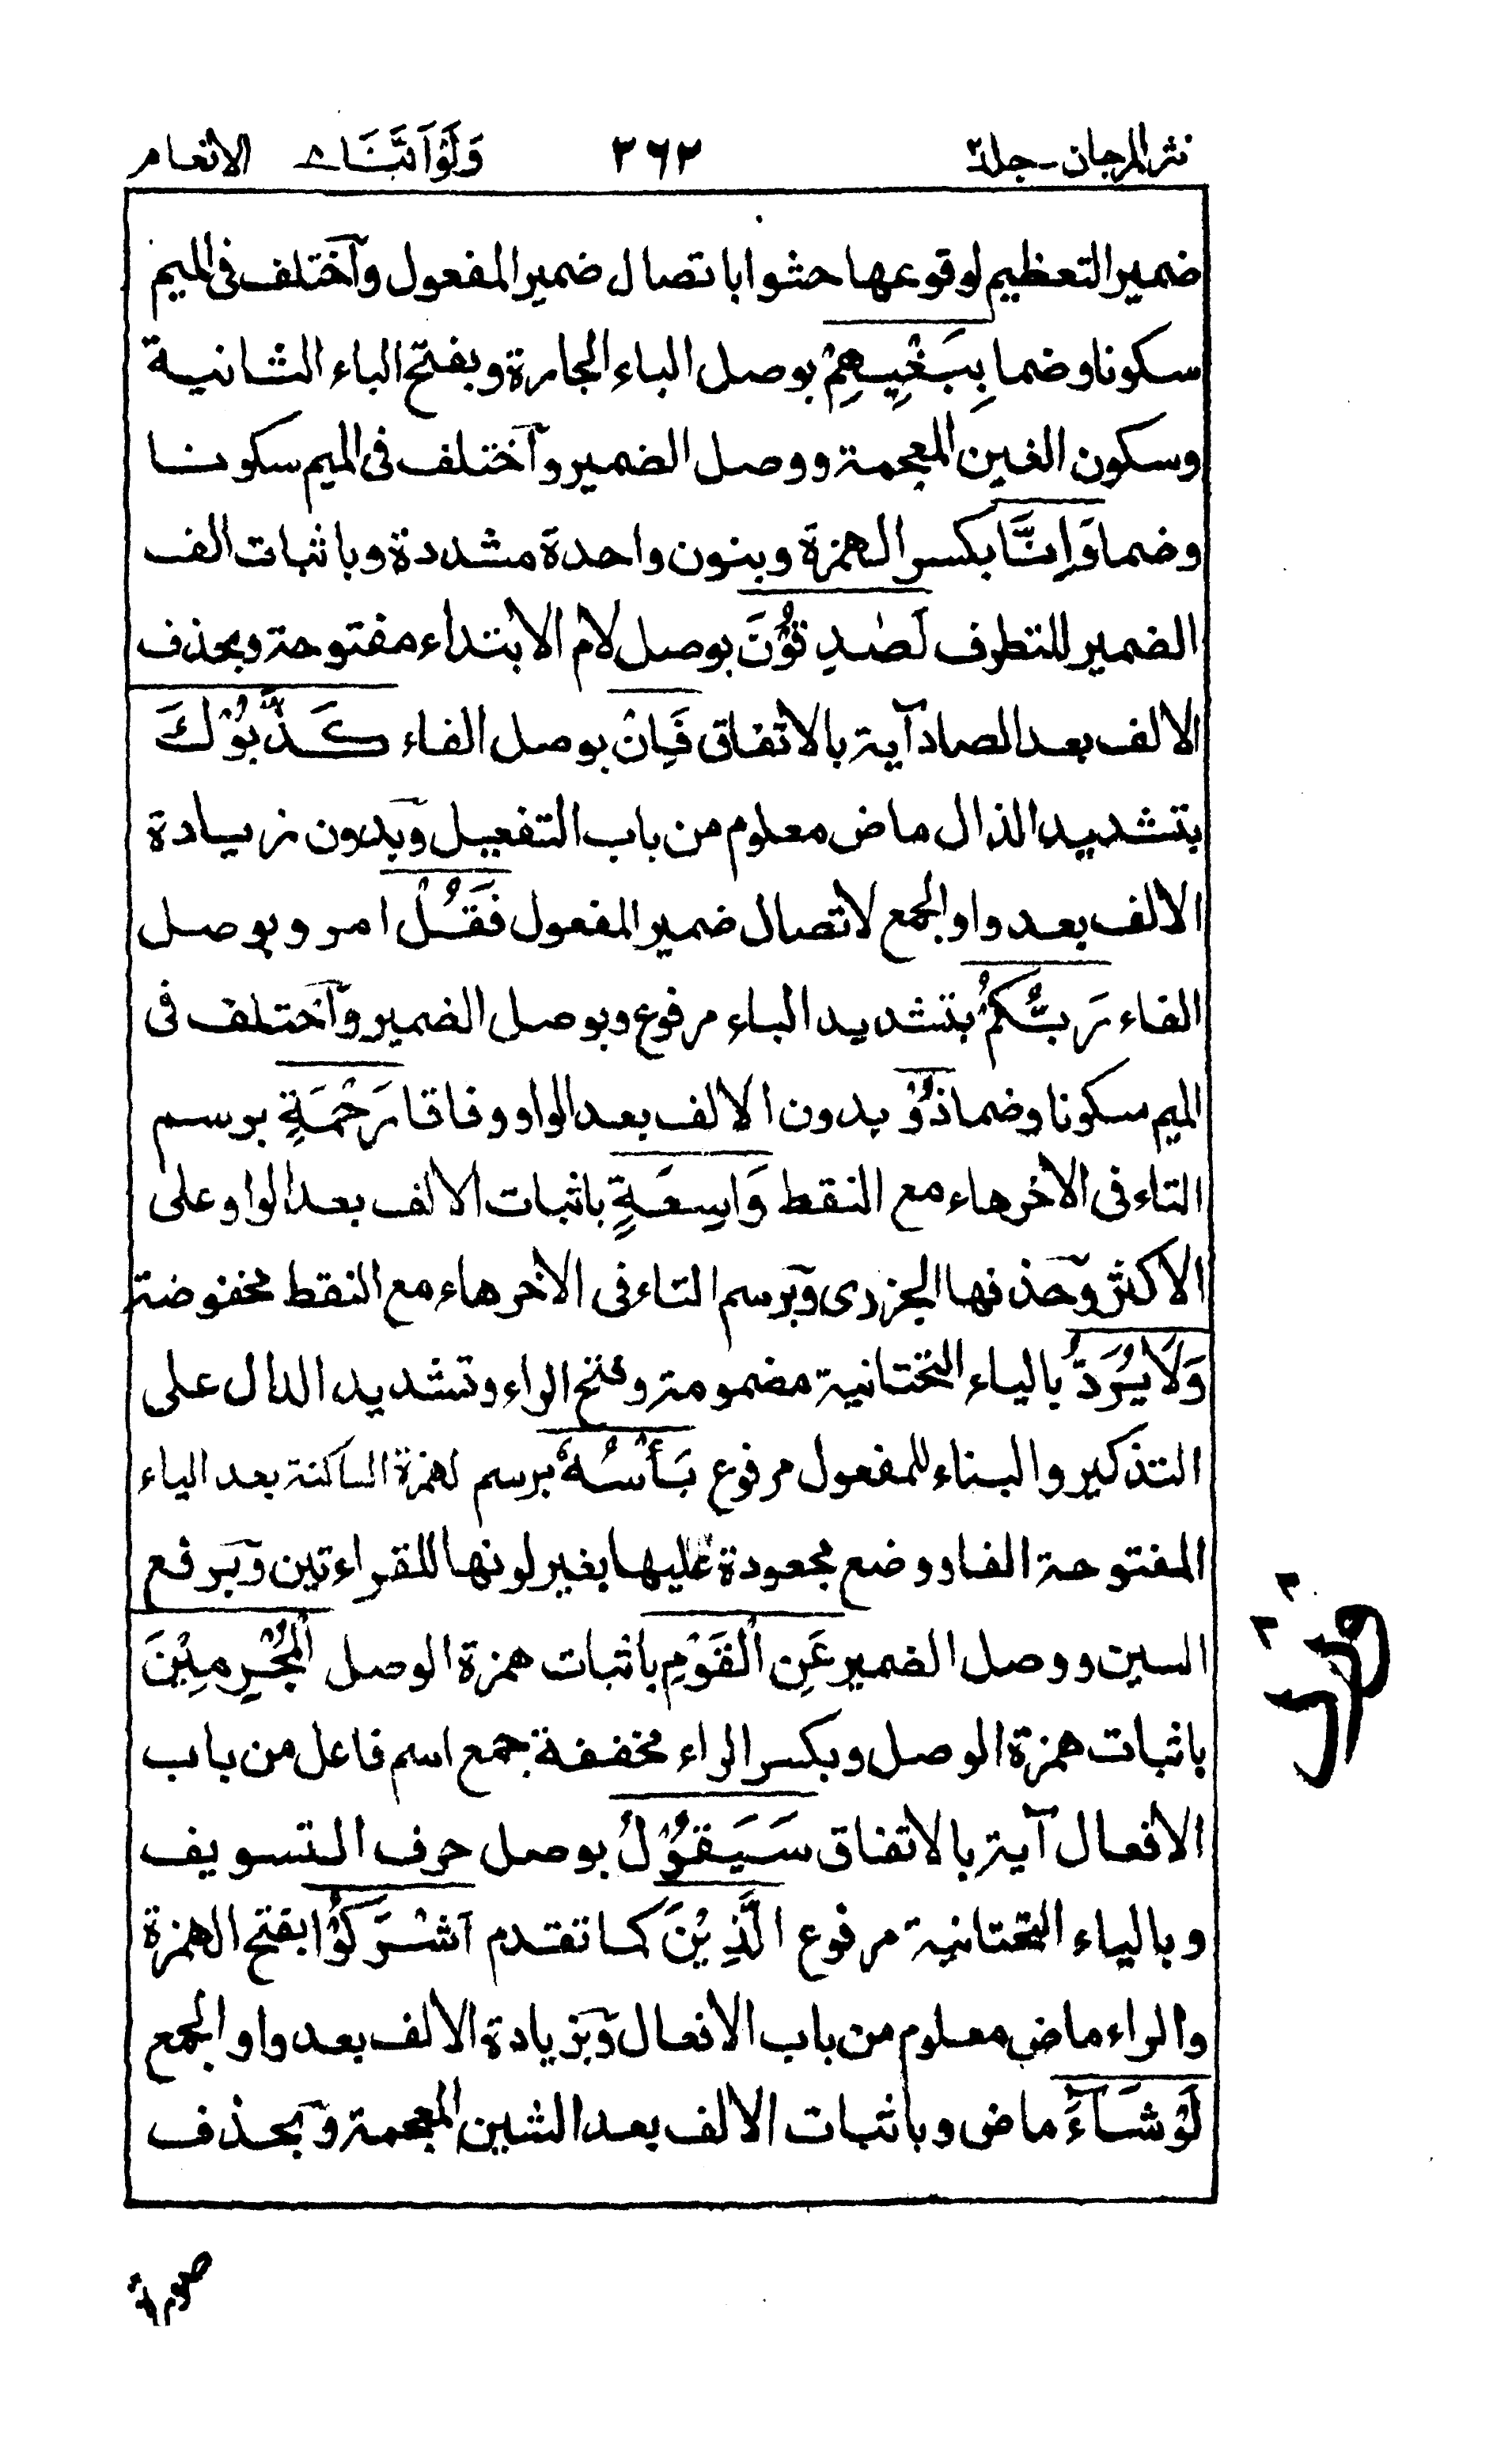 نثر المرجان - جلد٢ ٣٦٢ وَلَوْاَنَّنَا٨ الانعام
ضمير التعظيم لوقوعها حشوا باتصال ضمير المفعول وآختلف فى الميم
سكونا وضما بِبَغْيِهِمْ بوصل الباء الجارة وبفتح الباء الثانية
وسكون الغين المعجمة ووصل الضمير وآختلف فى الميم سكونا
وضما وَاِنَّا بكسر الهمزة وبنون واحدة مشددة وباثبات الف
الضمير للتطرف لَصٰدِقُوْنَ بوصل لام الابتداء مفتوحة وبحذف
الالف بعد الصاد آية بالاتفاق فَاِنْ بوصل الفاء كَذَّبُوْكَ
بتشديد الذال ماض معلوم من باب التفعيل وبدون زيادة
الالف بعد واو الجمع لاتصال ضمير المفعول فَقُلْ امر وبوصل
الفاء رَبُّكُمْ بتشديد الباء مرفوع وبوصل الضمير وآختلف فى
الميم سكونا وضما ذُوْ بدون الالف بعد الواو وفاقا رَحْمَةٍ برسم
التاء فى الاخر هاء مع النقط وَاسِعَةٍ باثبات الالف بعد الواو على
الاكثر وحذفها الجزرى وبرسم التاء فى الاخر هاء مع النقط مخفوضة
وَلَا يُرَدُّ بالياء التحتانية مضمومة وفتح الراء وتشديد الدال على
التذكير والبناء للمفعول مرفوع بَأْسُهٗ برسم لهمزة الساكنة بعد الياء
المفتوحة الفا ووضع مجعودة عليها بغير لونها للقراءتين وبرفع
السين ووصل الضمير عَنِ الْقَوْمِ باثبات همزة الوصل الْمُجْرِمِيْنَ
باثبات همزة الوصل وبكسر الراء مخففة جمع اسم فاعل من باب
الافعال آية بالاتفاق سَيَقُوْلُ بوصل حرف التسويف
وبالياء التحتانية مرفوع الَّذِيْنَ كما تقدم اَشْرَكُوْا بفتح الهمزة
والراء ماض معلوم من باب الافعال وبزيادة الالف بعد واو الجمع
لَوْ شَآءَ ماض وباثبات الالف بعد الشين المعجمة وبحذف